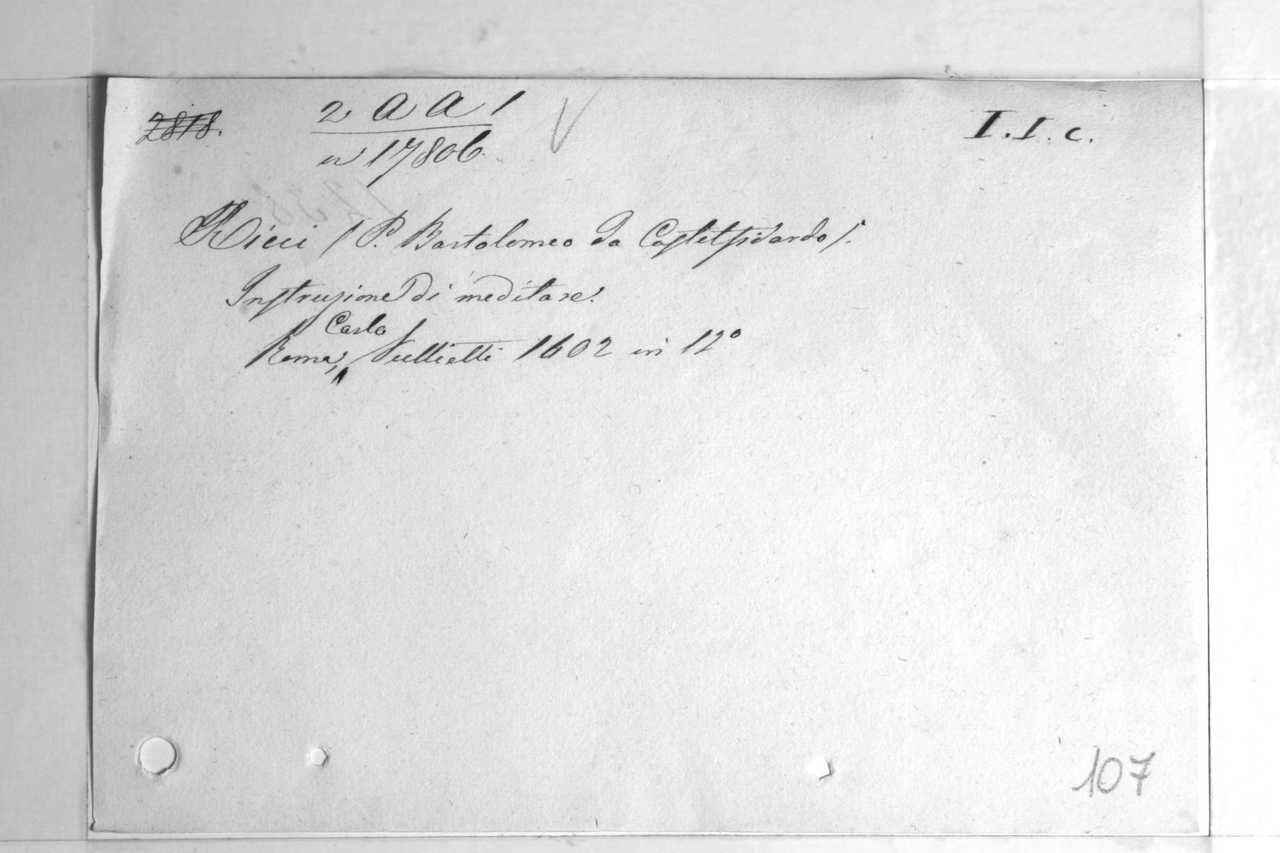 2818.
2 a a 1
n 17806.
I. I. c.
Ricci (P. Bartolomeo da Castelfidardo).
Instruzione di meditare.
Carlo
Roma, Vullietti 1602 in 12°
107